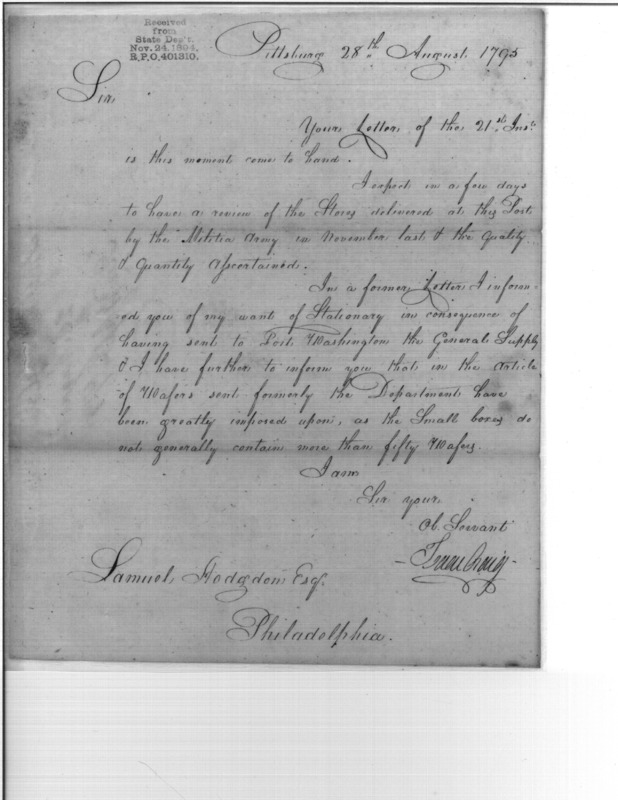 Received
from
State Dep't.
Nov. 24, 1894,
R.P.O. 401310.
Pittsburg 28th August 1795
Sir
Your Letter of the 21st Inst.
is this moment come to hand.
I expect in a few days
to have a review of the Stores delivered at this Post
by the Militia Army in November last & the Quality
& Quantity Ascertained.
In a former Letter I inform-
ed you of my want of Stationary in consequence of
having sent to Fort Washington the General Supply
& I have further to inform you that in the article
of Wafers sent formerly the Department have
been greatly imposed upon, as the Small boxes do
not generally contain more than fifty Wafers.
I am
Sir your
Ob. Servant
Isaac Craig
Samuel Hodgdon Esq.
Philadelphia.